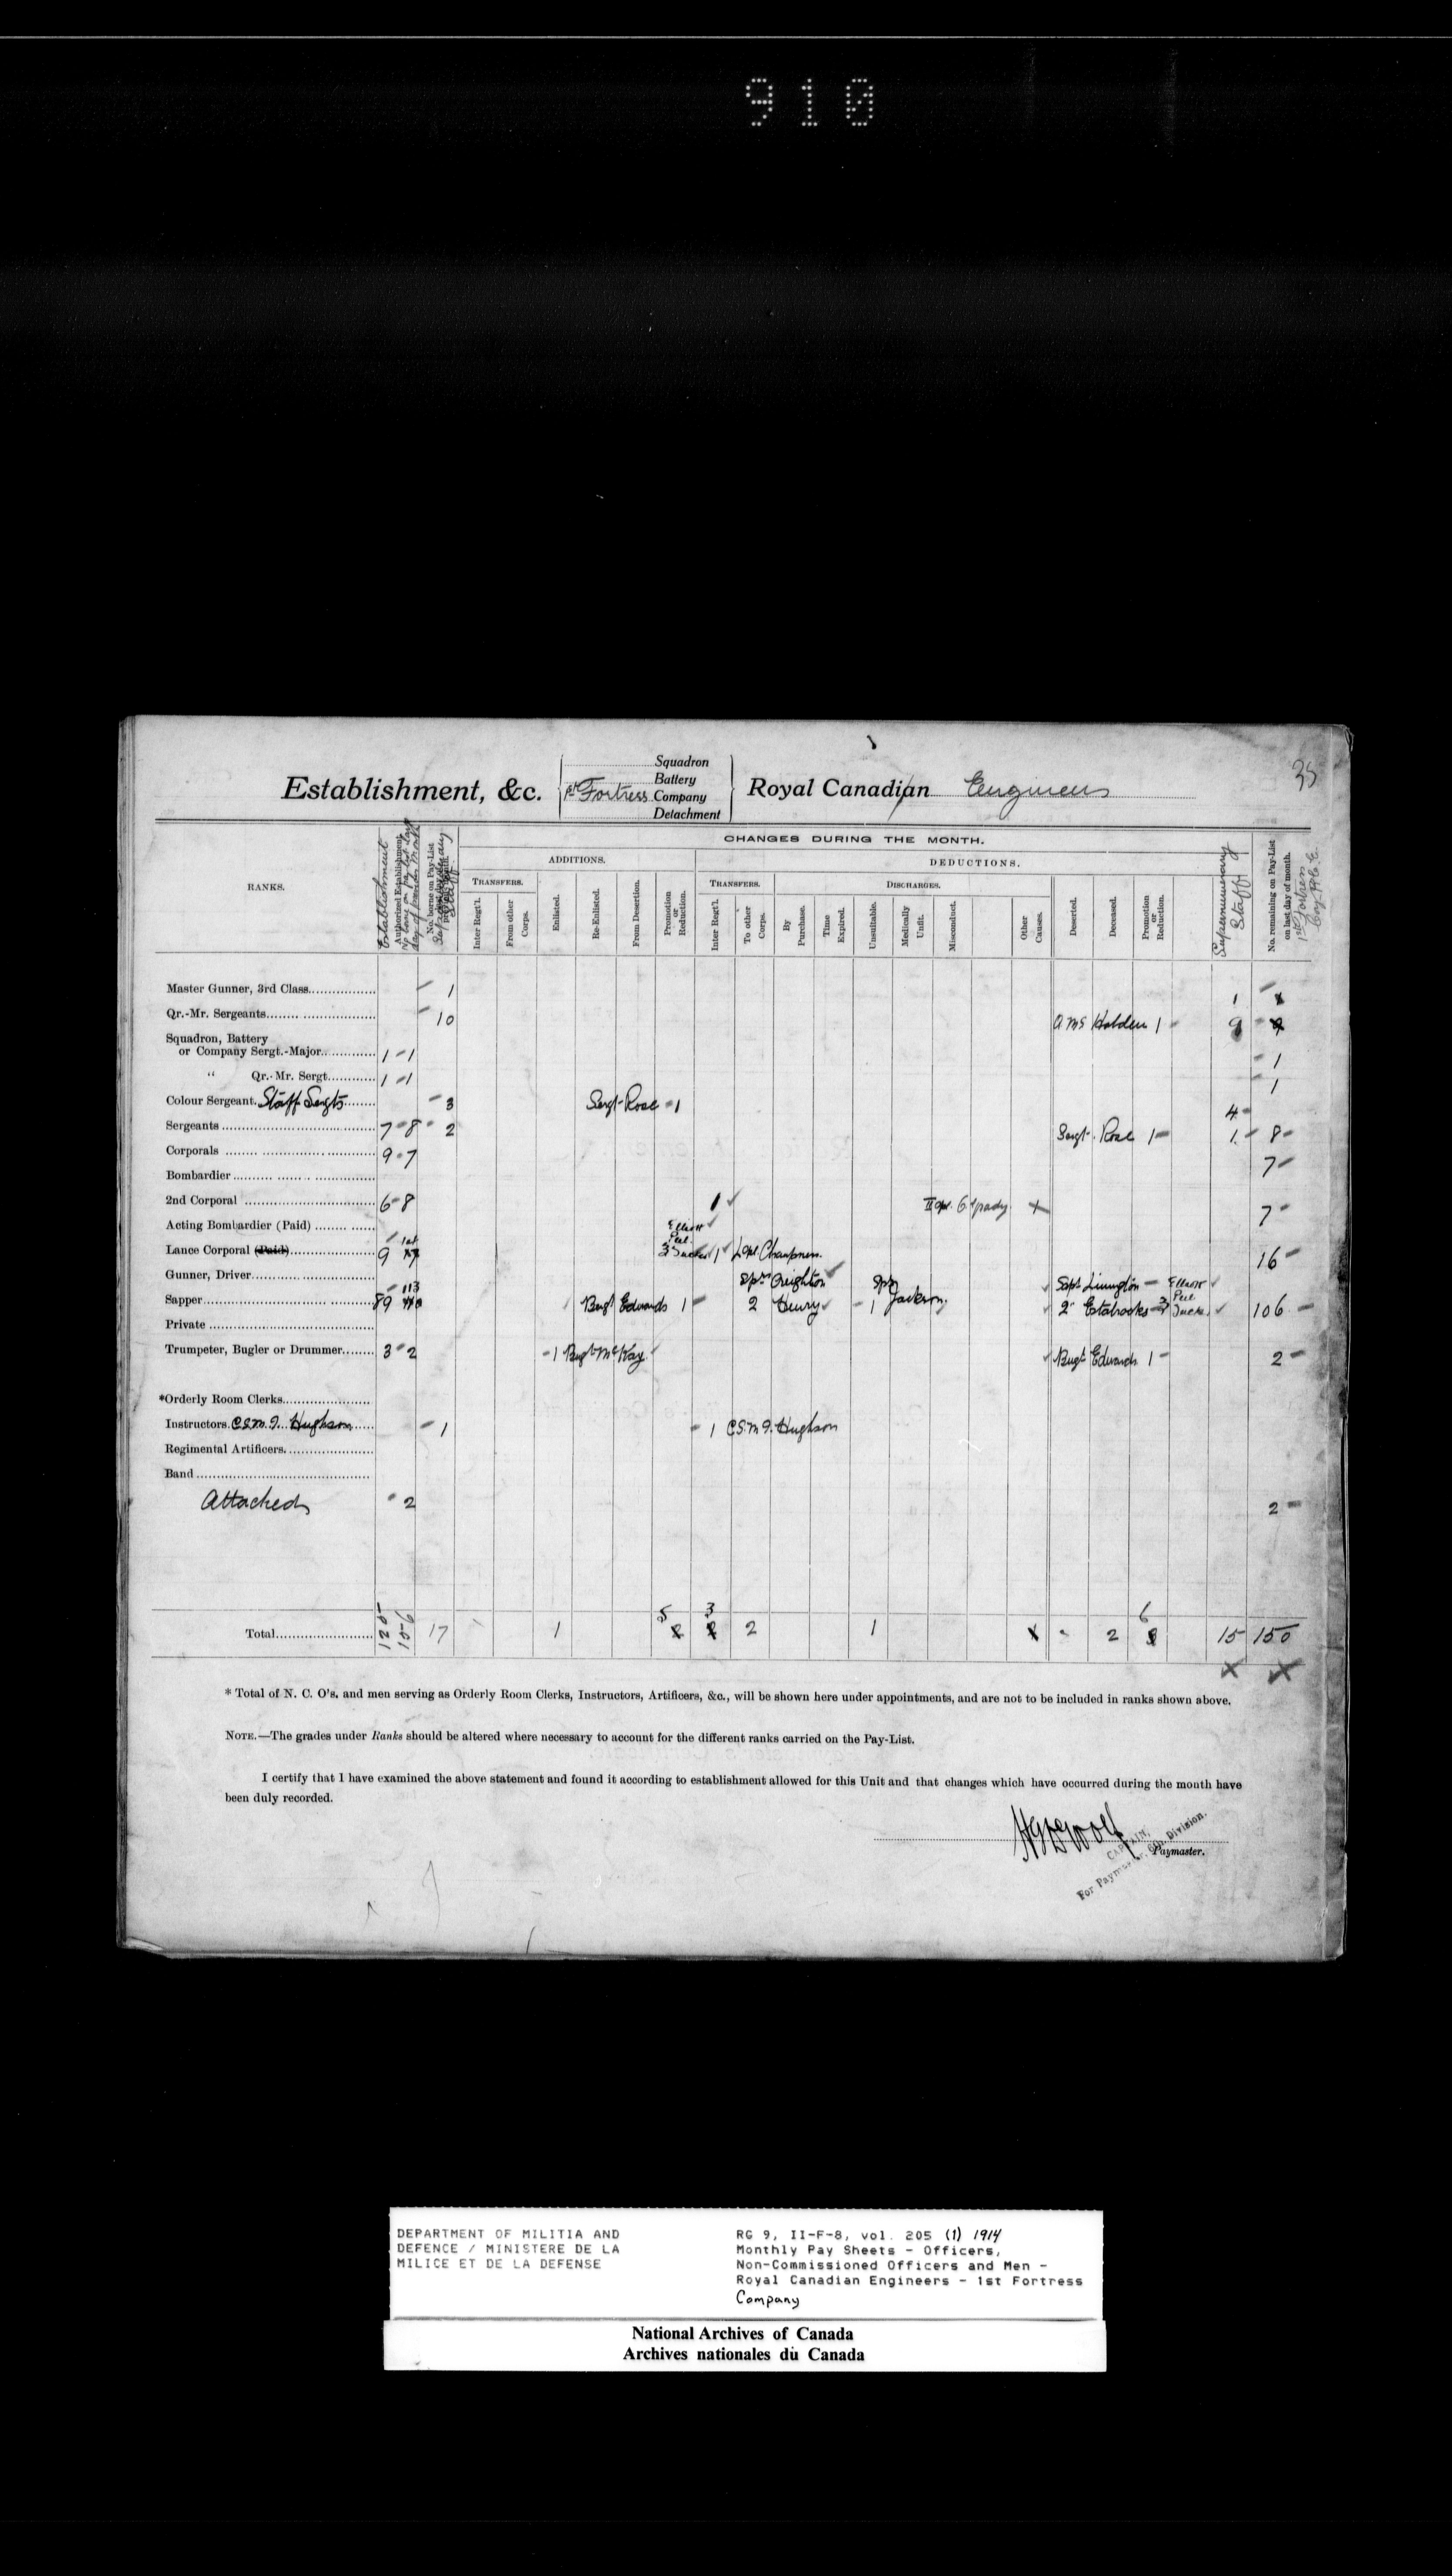 910
35
Establishment, &c. 1st Fortress Squadron Battery Company Detachment Royal Canadian Engineers
CHANGES DURING THE MONTH.
ADDITIONS. DEDUCTIONS.
RANKS. Establishment Authorized Establishment. No. borne on Pay-List Staff TRANSFERS. TRANSFERS. DISCHARGES. Supernumerary Staff No. remaining on Pay-List on last day of month. 1st Fortress Coy. R.C.E.
Inter Regt'l. From other Corps. Enlisted. Re-Enlisted. From Desertion. Promotion or Reduction. Inter Regt'l. To other Corps. By Purchase. Time Expired. Unsuitable. Medically Unfit. Misconduct. Other Causes. Deserted. Deceased. Promotion or Reduction.
Master Gunner, 3rd Class 1 1
Qr.-Mr. Sergeants 10 Holden 1 9
Squadron, Battery
or Company Sergt.-Major 1 1 1
" Qr.-Mr. Sergt. 1 1 1
Colour Sergeant. Staff Sergts 3 Sergt Rose 1 4
Sergeants 7 8 2 Sergt. Rose 1 1 8
Corporals 9 7 7
Bombardier
2nd Corporal 6 8 1 7
Acting Bombardier (Paid) Elliott
Lance Corporal (Paid) 9 3 1 Chapman 16
Gunner, Driver Creighton Elliott
Sapper 89 113 Bugl Edwards 1 2 Henry 1 Jackson 2 Estabrooks 106
Private
Trumpeter, Bugler or Drummer 3 2 1 Buglr McKay Buglr Edwards 1 2
*Orderly Room Clerks
Instructors C.S.M.I. Hughson 1 1 C.S.M.I. Hughson
Regimental Artificers
Band
Attached 2 2
5 3 6
Total 17 1 2 1 2 15 150
* Total of N. C. O's. and men serving as Orderly Room Clerks, Instructors, Artificers, &c., will be shown here under appointments, and are not to be included in ranks shown above.
NOTE.—The grades under Ranks should be altered where necessary to account for the different ranks carried on the Pay-List.
I certify that I have examined the above statement and found it according to establishment allowed for this Unit and that changes which have occurred during the month have
been duly recorded.
CAPTAIN,
For Paymaster, 6th Division.
Paymaster.
DEPARTMENT OF MILITIA AND
DEFENCE / MINISTERE DE LA
MILICE ET DE LA DEFENSE
RG 9, II-F-8, vol. 205 (1) 1914
Monthly Pay Sheets - Officers,
Non-Commissioned Officers and Men -
Royal Canadian Engineers - 1st Fortress
Company
National Archives of Canada
Archives nationales du Canada